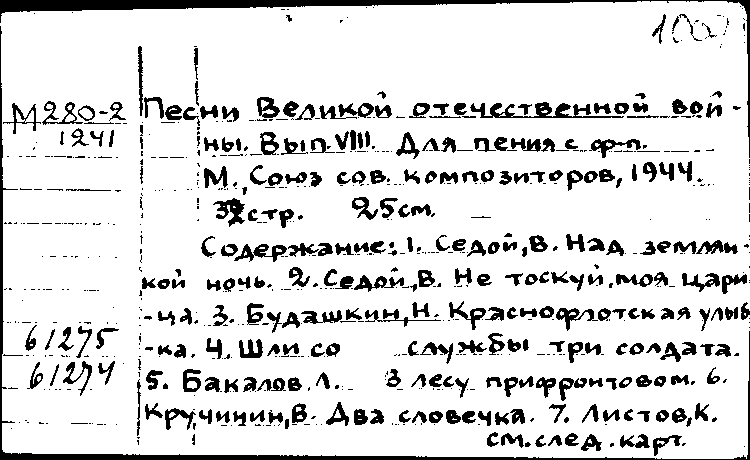 1007
М280-2
1241
Песни Великой отечественной вой-
ны. Вып. VIII. Для пения с ф-п.
М., Союз сов. композиторов, 1944.
32 стр. 25 см.
Содержание: 1. Седой, В. Над землян-
кой ночь. 2. Седой, В. Не тоскуй, моя цари
-ца. 3. Будашкин, Н. Краснофлотская улыб
61275
-ка. 4. Шли со службы три солдата.
61274
5. Бакалов, Л. В лесу прифронтовом. 6.
Кручинин, В. Два словечка. 7. Листов, К.
см. след. карт.